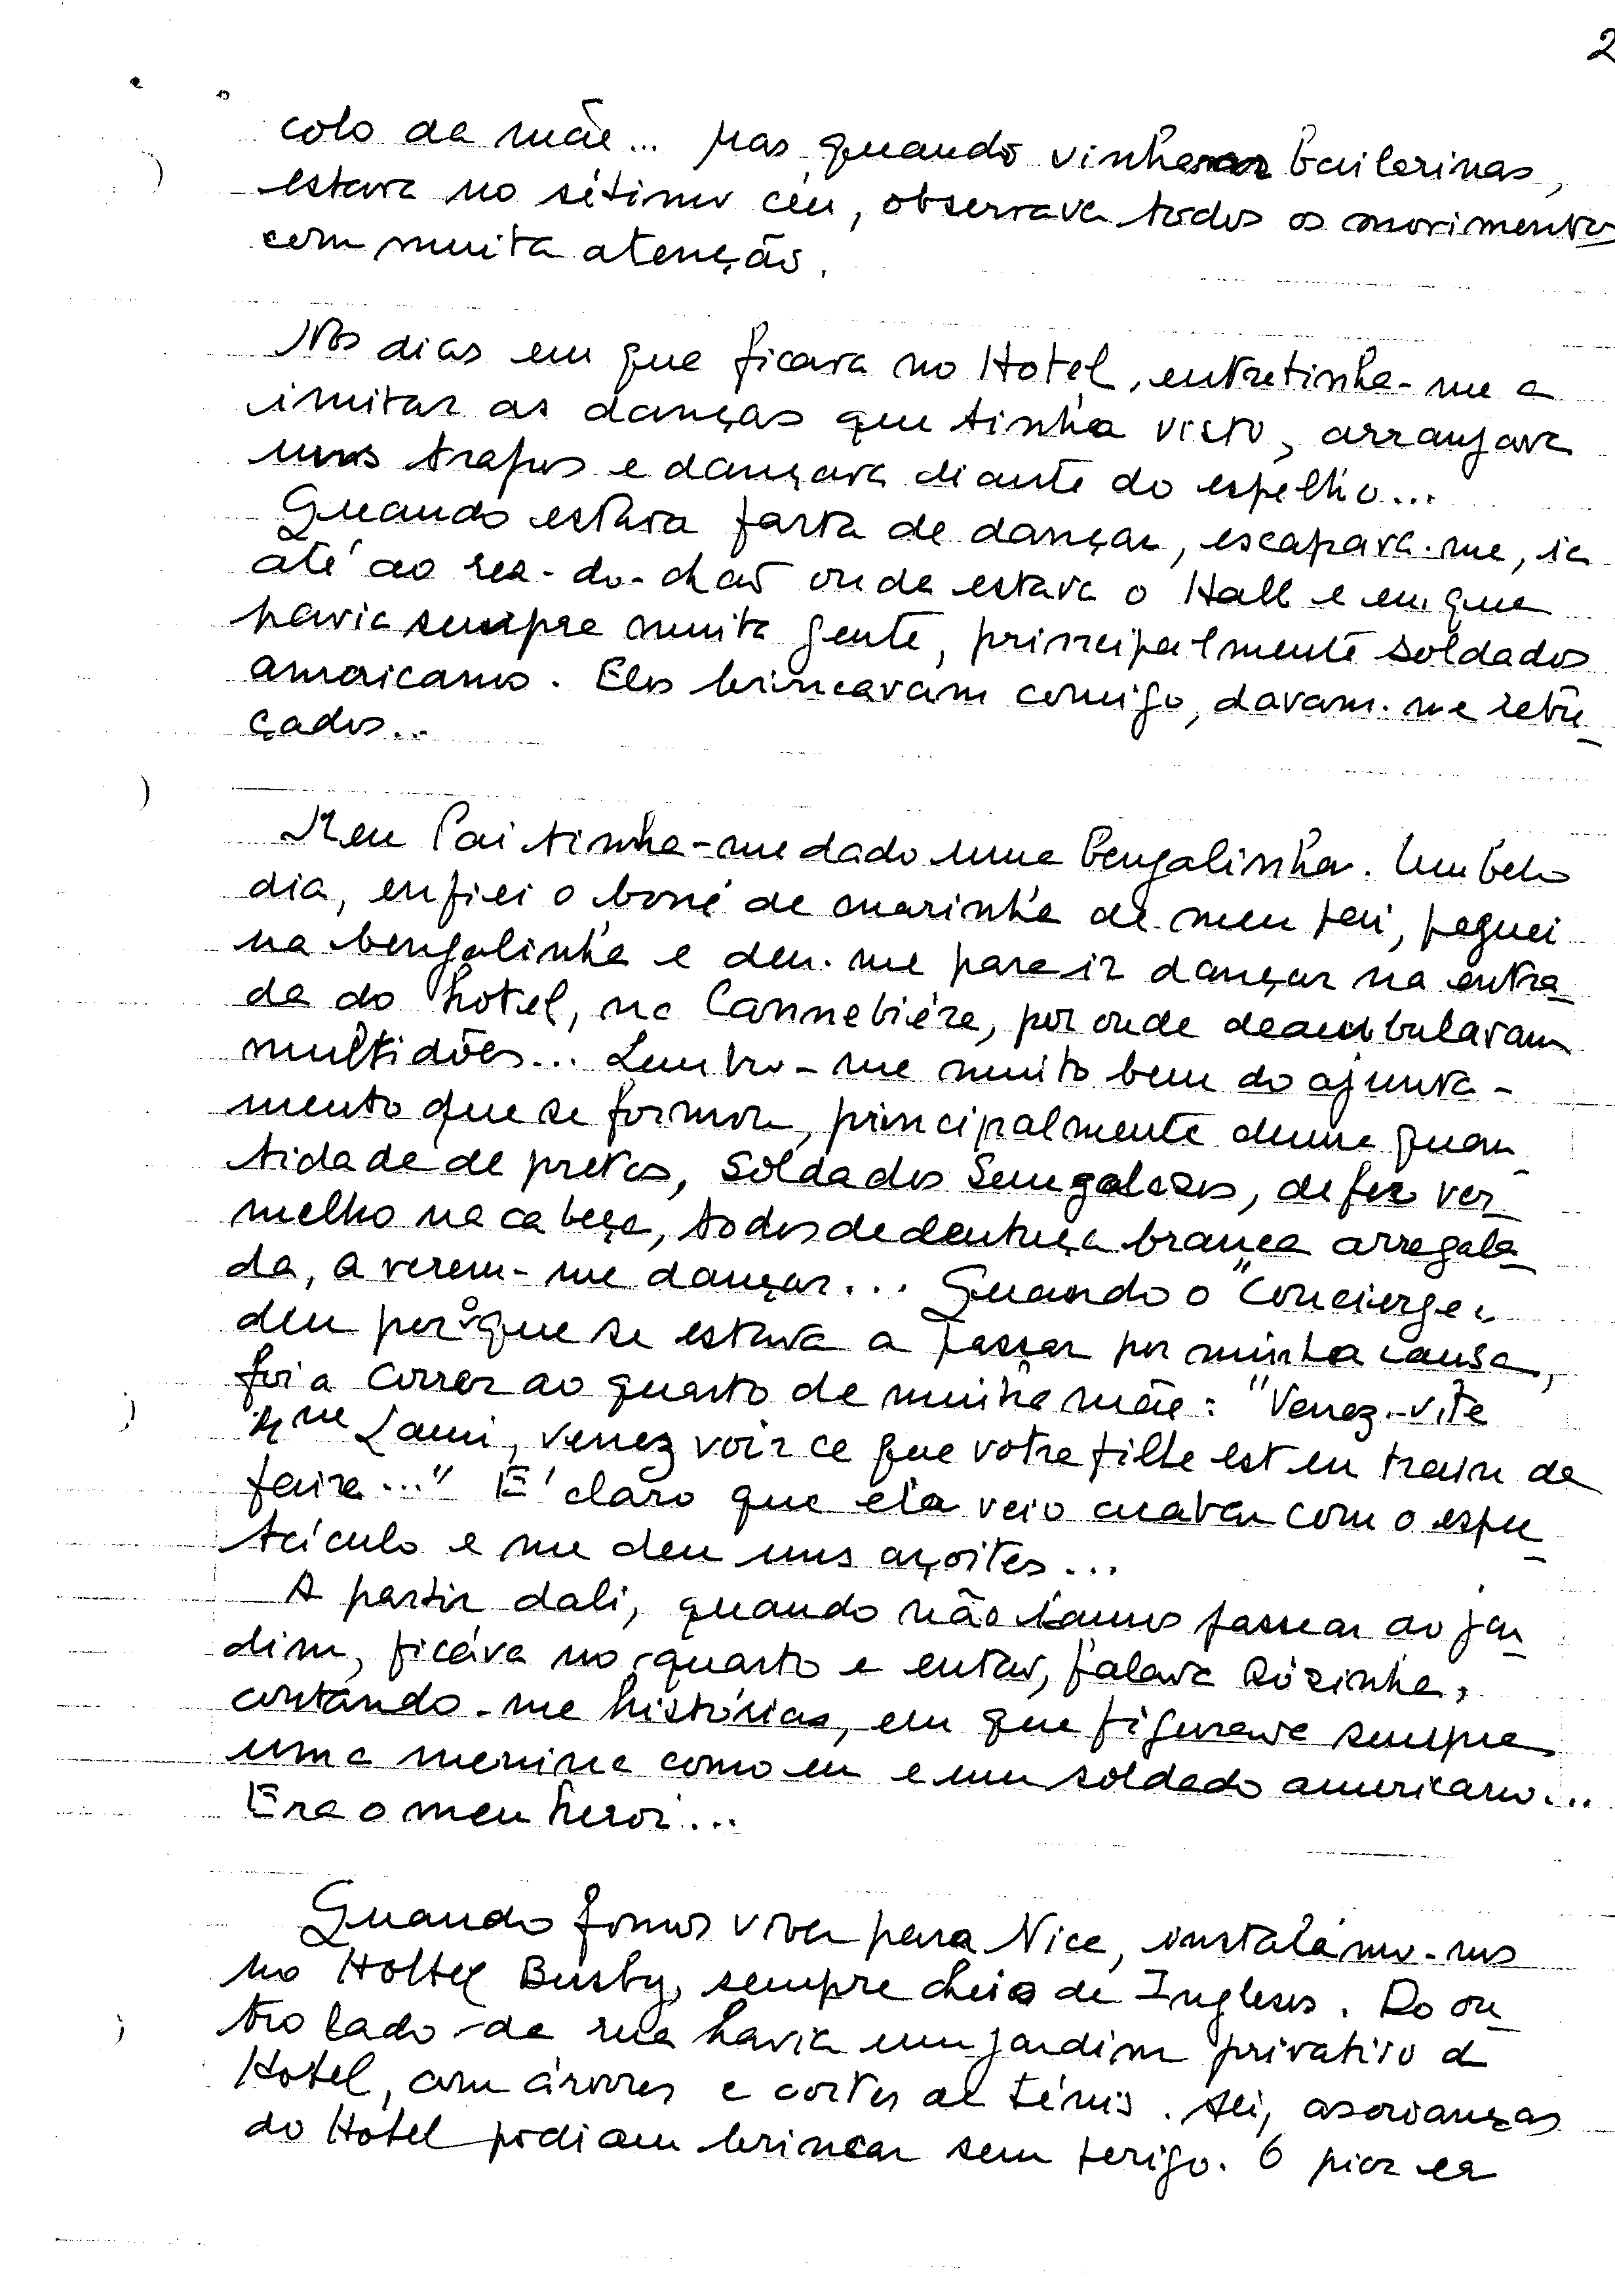 2
colo da mãe... mas quando vinham bailarinas,
estava no sétimo céu, observava todos os movimentos
com muita atenção.
Nos dias em que ficava no Hotel, entretinha-me a
imitar as danças que tinha visto, arranjava
uns trapos e dançava diante do espelho...
Quando estava farta de dançar, escapava-me, ia
até ao rez-do-chão onde estava o Hall e em que
havia sempre muita gente, principalmente soldados
americanos. Eles brincavam comigo, davam-me rebu_
çados...
Meu Pai tinha-me dado uma bengalinha. Um belo
dia, enfiei o boné de marinha de meu pai, peguei
na bengalinha e deu-me para ir dançar na entra_
da do hotel, na Cannebiére, por onde deambulavam
multidões... Lembro-me muito bem do ajunta-
mento que se formou, principalmente duma quan_
tidade de pretos, Soldados Senegaleses, de fez ver_
melho na cabeça, todos de dentuça branca arregala_
da, a verem-me dançar... Quando o "Concierge"
deu pelo que se estava a passar por minha causa,
foi a correr ao quarto de minha mãe: "Venez-vite
Mme Lami, venez voir ce que votre fille est en train de
faire..." É claro que ela veio acabar com o espec_
táculo e me deu uns açoites...
A partir dali, quando não íamos passear ao jar_
dim, ficava no quarto e então, falava sòzinha,
contando-me histórias, em que figurava sempre
uma menina como eu e um soldado americano...
Era o meu herói...
Quando fomos viver para Nice, instalámo-nos
no Hottel Busby, sempre cheio de Ingleses. Do ou_
tro lado da rua havia um jardim privativo d
Hotel, com árvores e cortes de ténis. Ali, as crianças
do Hotel podiam brincar sem perigo. O pior er